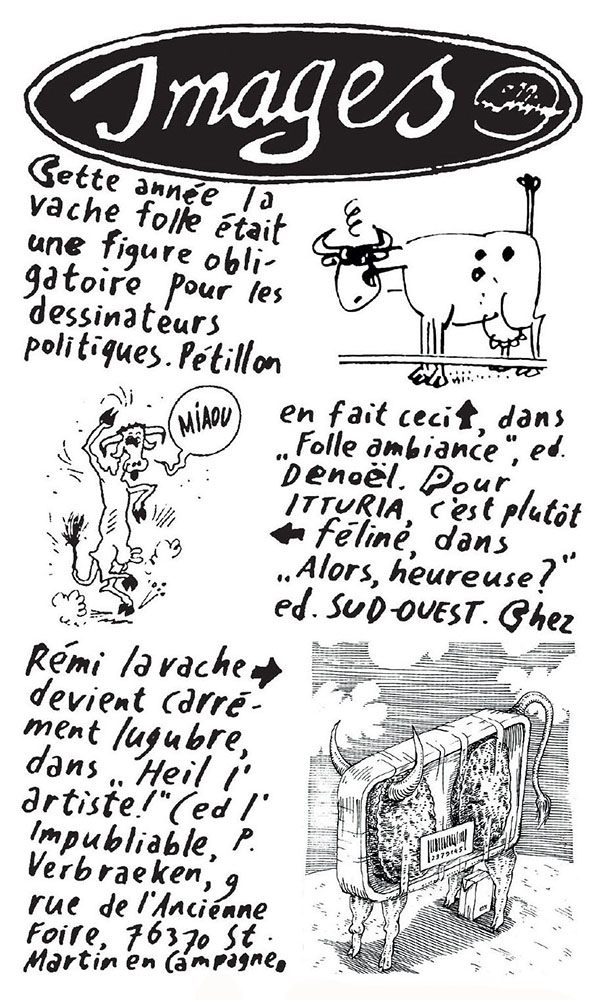 Images
Cette année la
vache folle était
une figure obli-
gatoire pour les
dessinateurs
politiques. Pétillon
MiAOU
en fait ceci, dans
„Folle ambiance", ed.
Denoël. Pour
ITTURIA, c'est plutôt
féline, dans
„Alors, heureuse?"
ed. SUD-OUEST. Chez
Rémi la vache
devient carré-
ment lugubre,
dans „Heil l'
artiste!" (ed l'
Impubliable, P.
Verbraeken, 9
rue de l'Ancienne
Foire, 76370 St.
Martin en Campagne.